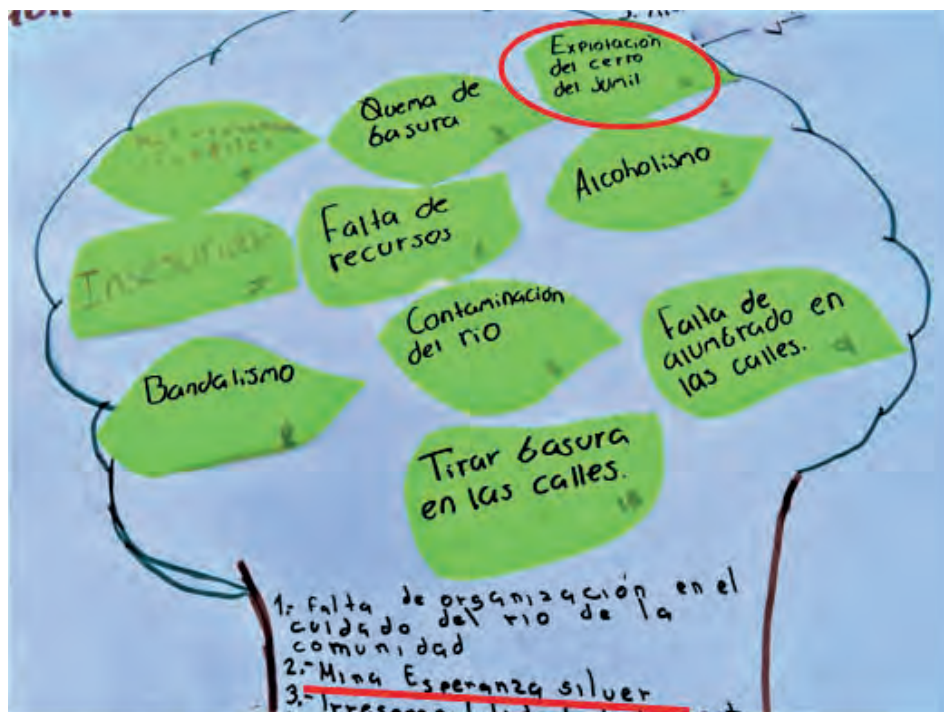 Explotación
del cerro
del Jumil
Quema de
basura
3
Alcoholismo
2
Falta de
recursos
Contaminación
del rio
Falta de
alumbrado en
las calles.
9
Bandalismo
Tirar basura
en las calles.
10
1.- Falta de organización en el
cuidado del rio de la
comunidad
2.- Mina Esperanza silver
3.-